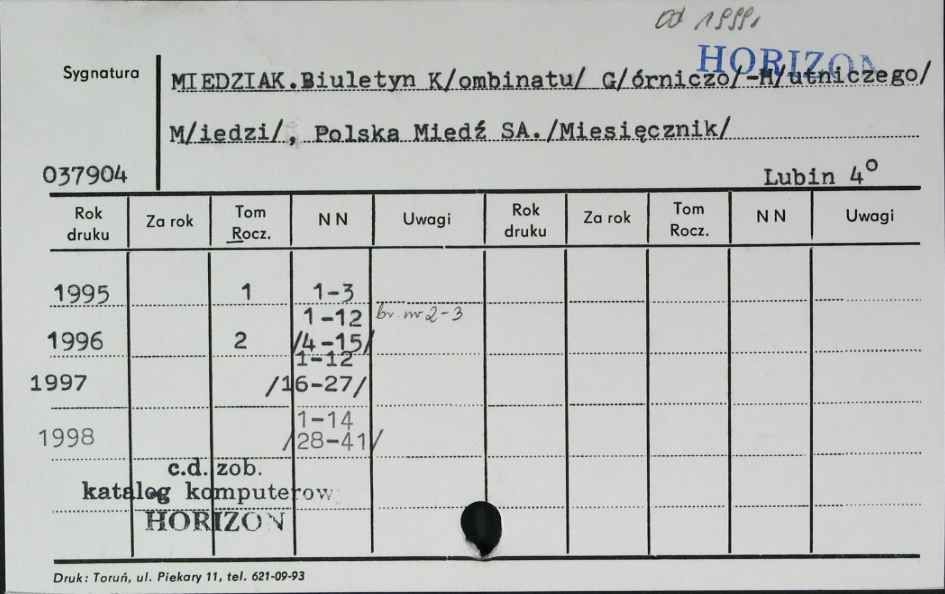 od 1999,
HORIZON
Sygnatura
MIEDZIAK.Biuletyn K/ombinatu/ G/órniczo/-H/utniczego/
M/iedzi/, Polska Miedź SA./Miesięcznik/
037904
Lubin 4°
Rok druku Za rok Tom Rocz. N N Uwagi Rok druku Za rok Tom Rocz. N N Uwagi
1995 1 1-3
1-12 br nr 2-3
1996 2 /4-15/
1-12
1997 /16-27/
1-14
1998 /28-41/
c.d. zob.
katalog komputerow
HORIZON
Druk: Toruń, ul. Piekary 11, tel. 621-09-93